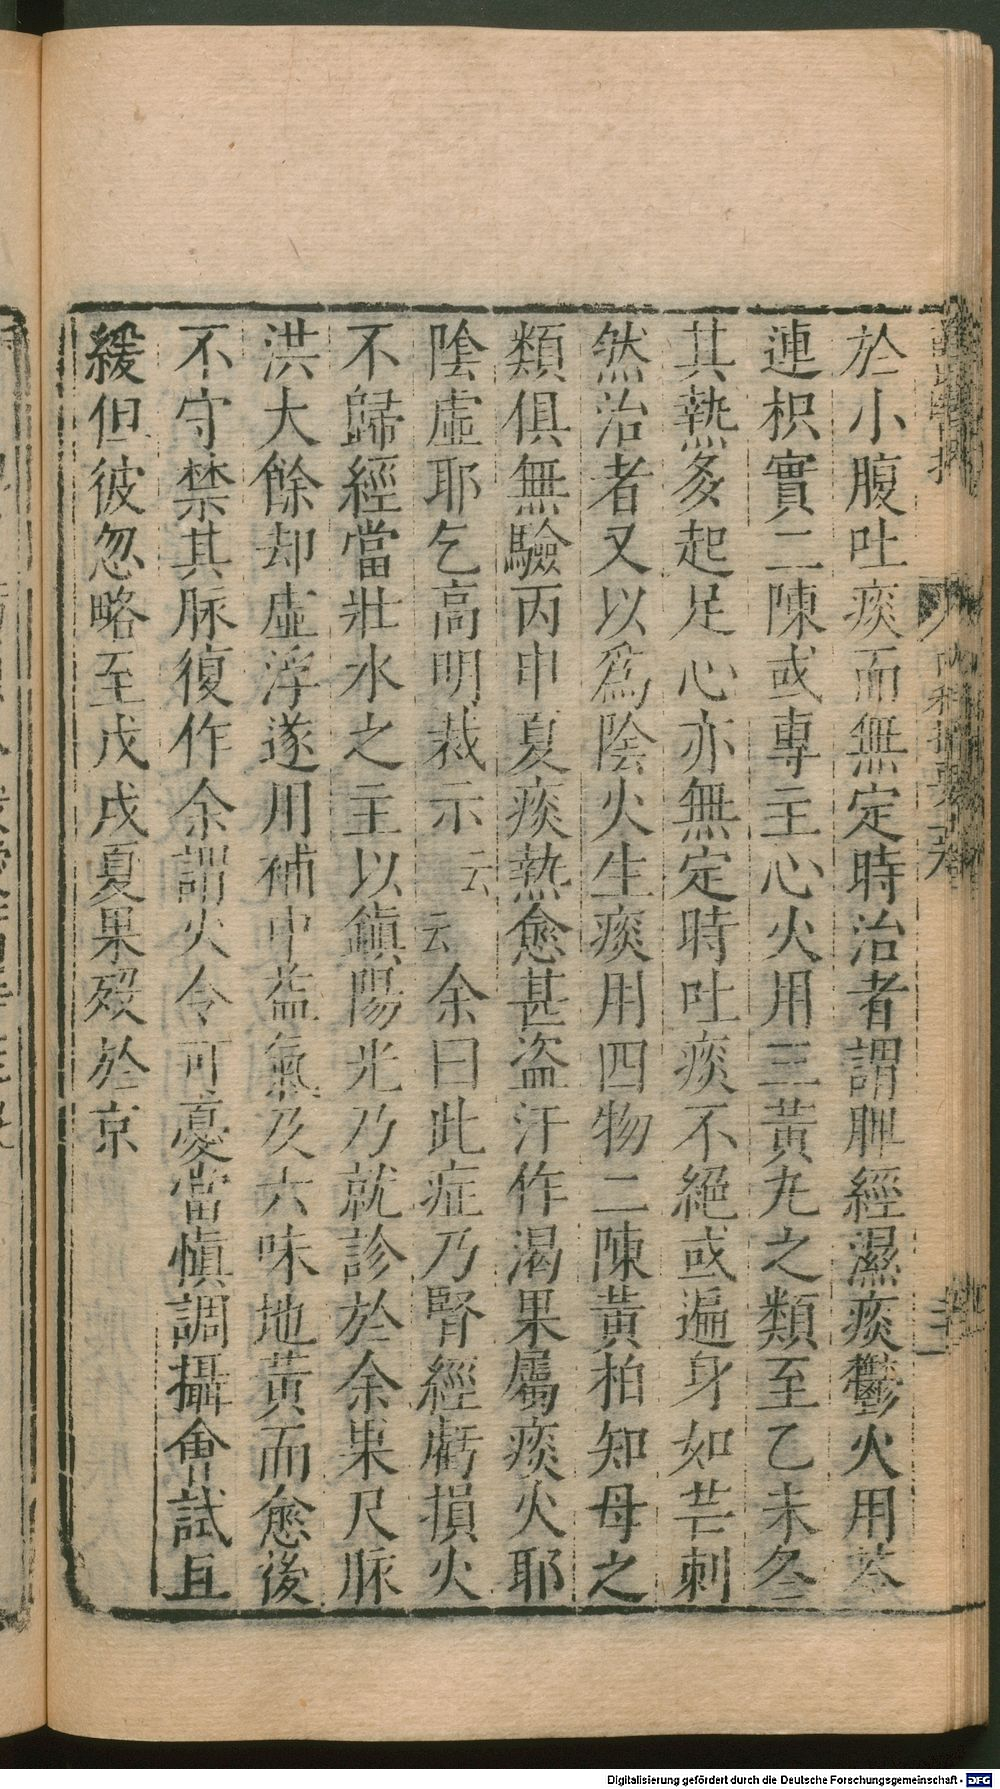 於小腹吐痰而無定時治者謂脾經濕痰鬱火用芩
連枳實二陳或專主心火用三黃丸之類至乙未冬
其熱多起足心亦無定時吐痰不絕或遍身如芒刺
然治者又以爲陰火生痰用四物二陳黃柏知母之
類俱無驗丙申夏痰熱愈甚盜汗作渴果屬痰火耶
陰虛耶乞高明裁示云云余曰此症乃腎經虧損火
不歸經當壯水之主以鎮陽光乃就診於余果尺脈
洪大餘却虛浮遂用補中益氣及六味地黃而愈後
不守禁其脈復作余謂火令可憂當慎調攝會試且
緩但彼忽略至戊戌夏果歿於京
Digitalisierung gefördert durch die Deutsche Forschungsgemeinschaft - DFG